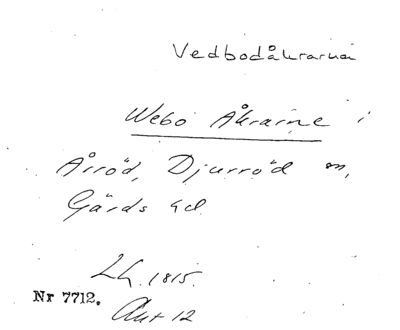 Vedbodåkrarna
Webo Åkrarne i
Årröd, Djurröd sn,
Gärds hd.
LA. 1815.
Nr 7712.
Akt 12